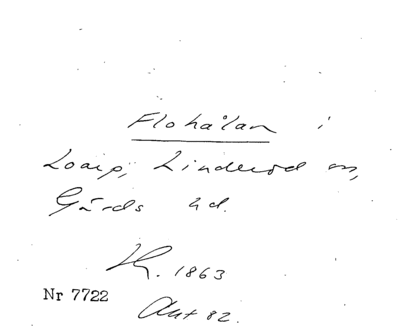 Flohålan i
Loarp, Linderöd sn,
Gärds hd.
K. 1863
Nr 7722
Ant 82.